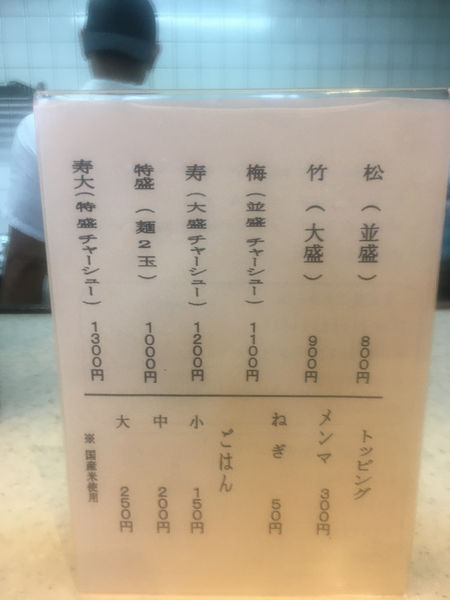 松（並盛） 800円
竹（大盛） 900円
梅（並盛チャーシュー） 1100円
寿（大盛チャーシュー） 1200円
特盛（麺2玉） 1000円
寿大（特盛チャーシュー） 1300円
トッピング
メンマ 300円
ねぎ 50円
ごはん
小 150円
中 200円
大 250円
※国産米使用